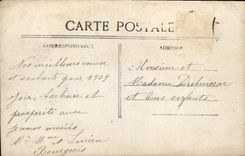 CARTE POSTALE
CORRESPONDANCE
Nos meilleurs voeux
et souhaits pour 1909
Joie, bonheur et
prospérité aux
jeunes mariés
Mr Mme A Lucien
Bourgeois
ADRESSE
Monsieur et
Madame
et leurs enfants